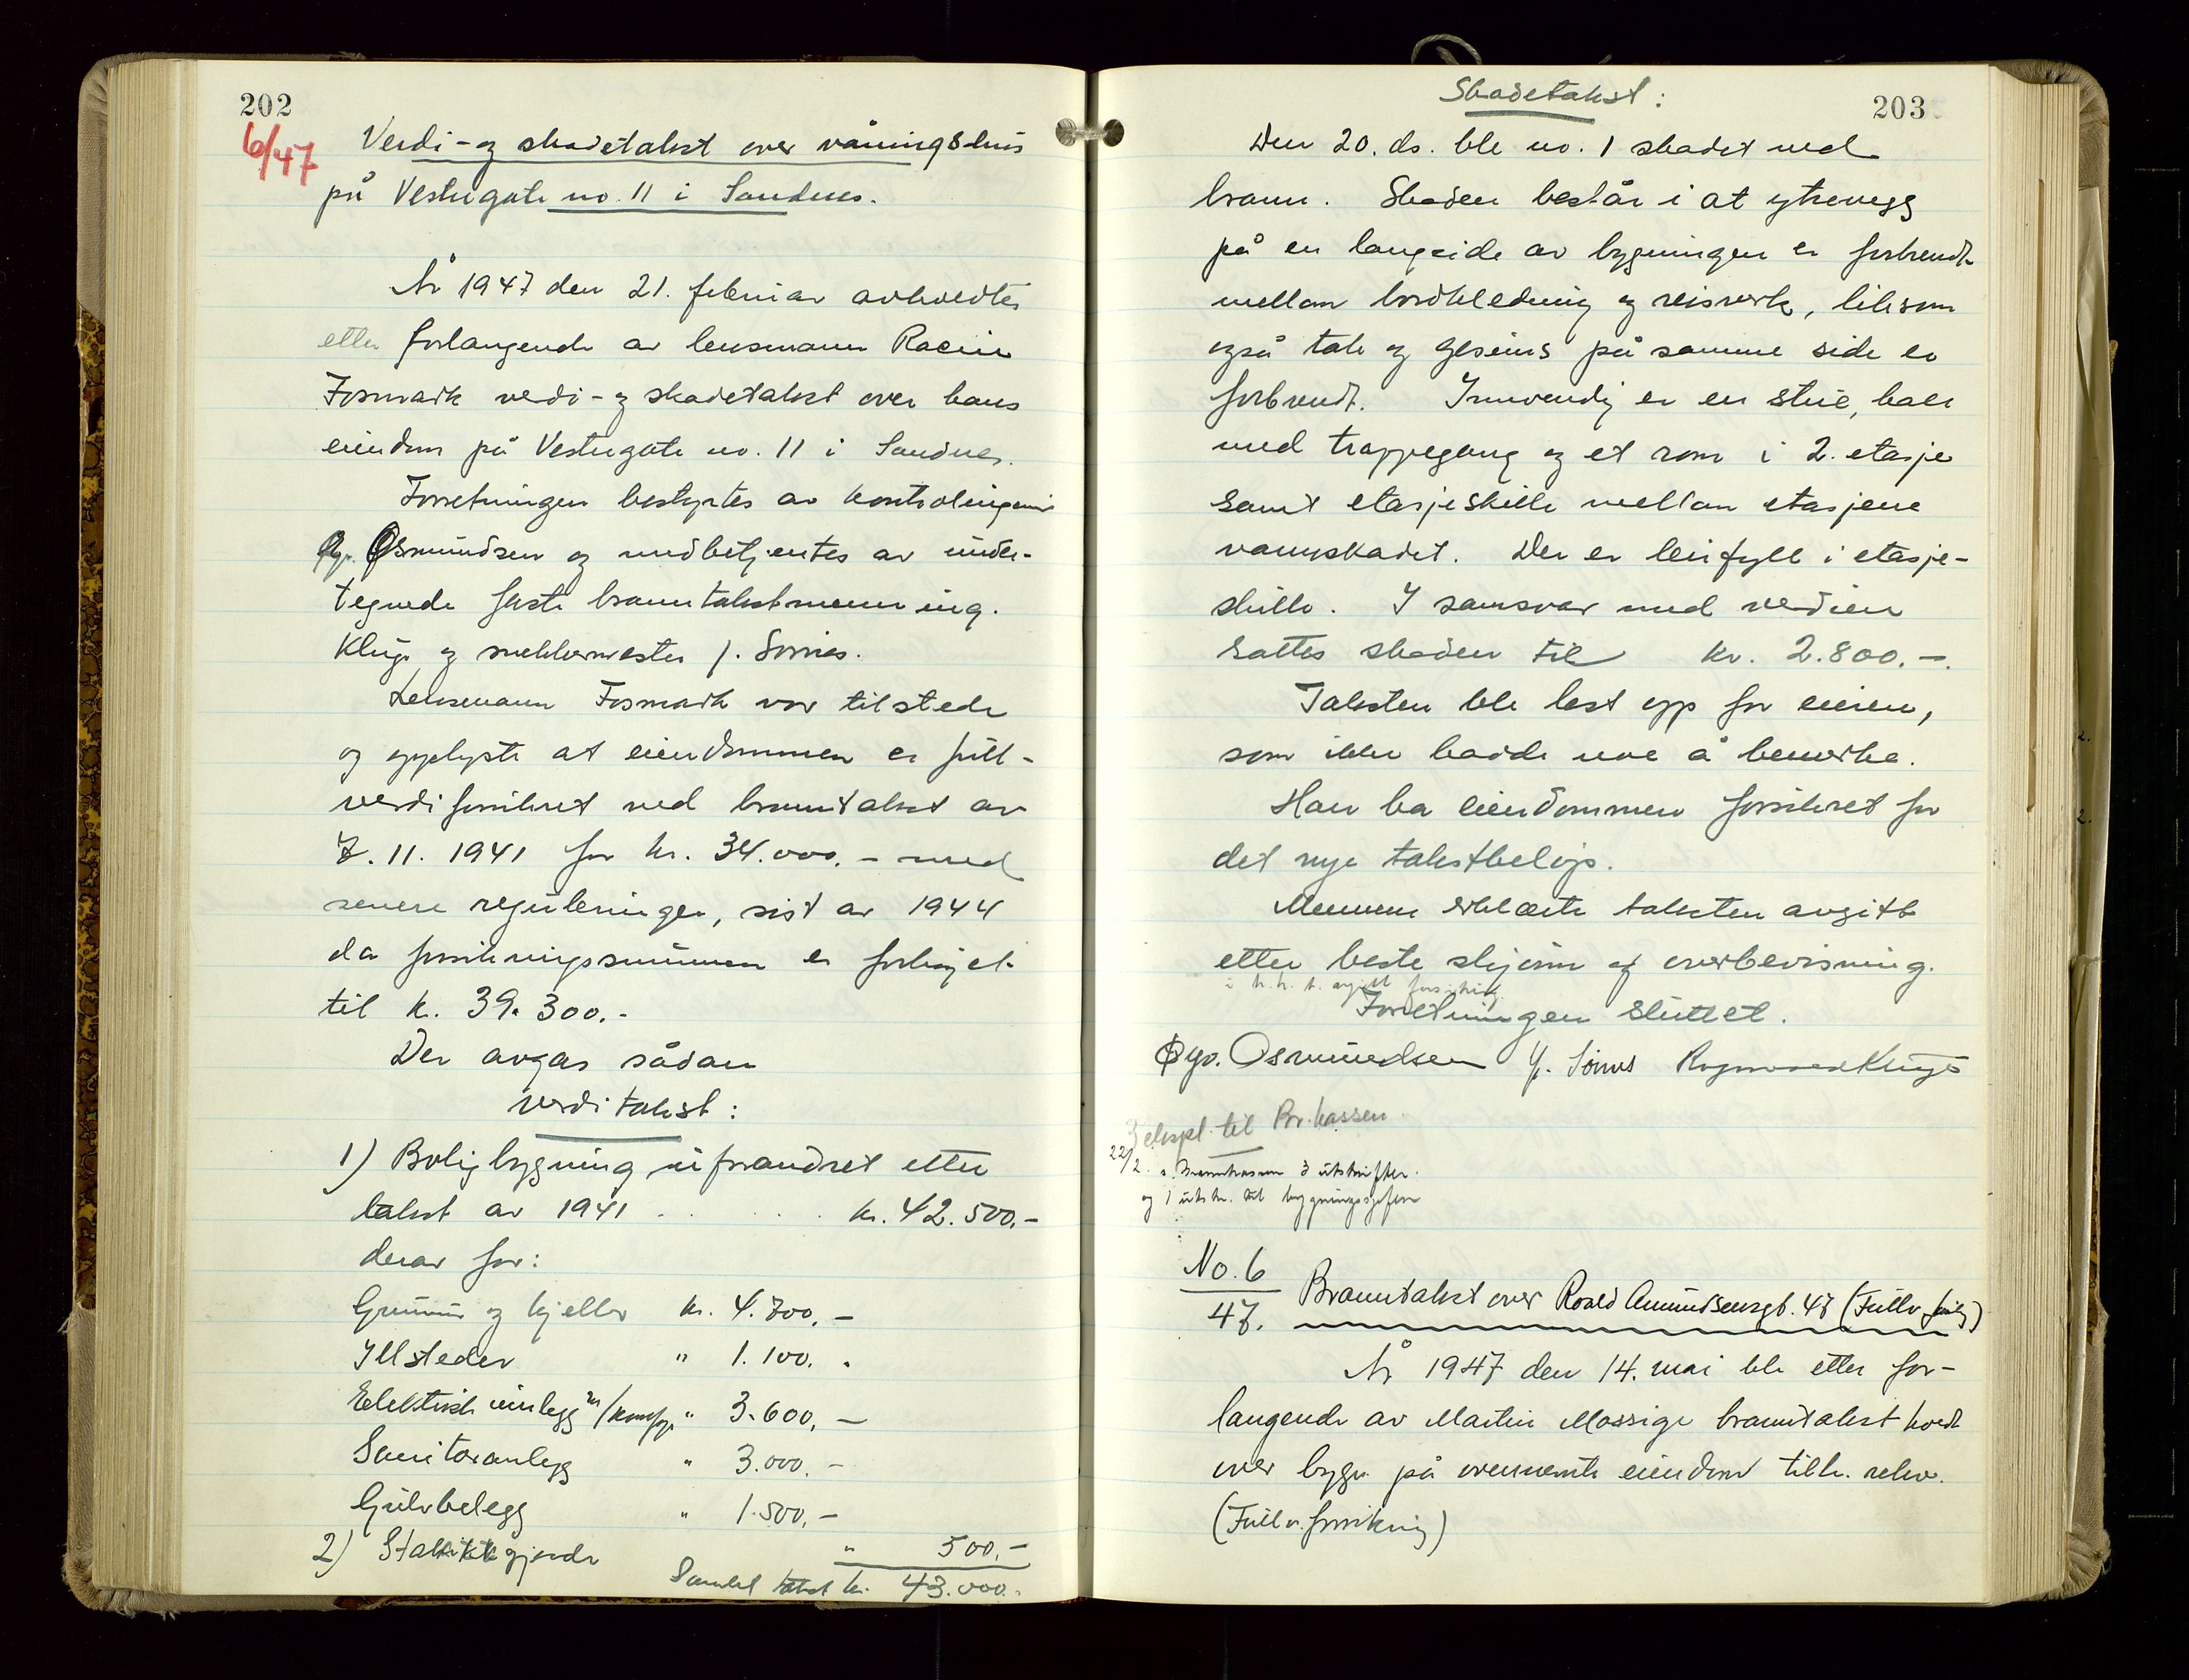 202
6/47
Verdi- og skadetakst over våningshus
på Vestregate no. 11 i Sandnes.
År 1947 den 21. februar avholdtes
etter forlangende av lensmann Racin
Fosmark verdi- og skadetakst over hans
eiendom på Vestregate no. 11 i Sandnes.
Forretningen bestyrtes av kontrolingeniør
Øyv. Osmundsen og medbetjentes av under-
tegnede faste branntakstmenn ing.
Kluge og snekkermester J. Sømes.
Lensmann Fosmark var tilstede
og opplyste at eiendommen er full-
verdiforsikret ved branntakst av
7.11.1941 for kr. 34.000.- med
senere reguleringer, sist av 1944
da forsikringssummen er forhøjet
til kr. 39.300.-
Der avgas sådan
verditakst:
1) Boligbygning uforandret etter
takst av 1941 . . . . kr. 42.500.-
derav for:
Grunnmur og kjeller kr. 4.700.-
Illsteder " 1.100.-
Elektrisk innlegg m/komfyr " 3.600.-
Sanitæranlegg " 3.000.-
Gulvbelegg " 1.500.-
2) Stakittgjerde " 500.-
Samlet takst kr. 43.000.-
203
Skadetakst:
Den 20. ds. ble no. 1 skadet ved
brann. Skaden består i at yttervegg
på en langside av bygningen er forbrendt
mellom bordkledning og reisverk, liksom
også tak og gesims på samme side er
forbrendt. Innvendig er en stue, hall
med trappegang og et rom i 2. etasje
samt etasjeskille mellom etasjene
vannskadet. Der er leirfyll i etasje-
skille. I samsvar med verdien
sattes skaden til kr. 2.800.-.
Taksten ble lest opp for eieren,
som ikke hadde noe å bemerke.
Han ba eiendommen forsikret for
det nye takstbeløp.
Mennene erklærte taksten avgitt
etter beste skjønn og overbevisning.
i h.h.t. avgitt forsikring.
Forretningen sluttet.
Øyv. Osmundsen J. Sømes Ragnvald Kluge
3 ekspl. til Br.kassen
22/2. s. Brannkassen 3 utskrifter
og 1 utskr. til bygningssjefen
No. 6
47. Branntakst over Roald Amundsensgt. 47 (Fullv. forsikr.)
År 1947 den 14. mai ble etter for-
langende av Martin Mossige branntakst holdt
over bygn. på ovennevnte eiendom tilh. rekv.
(Fullv. forsikring)